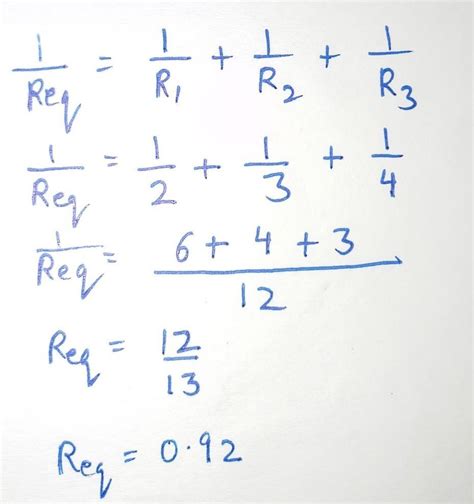 1/Req = 1/R₁ + 1/R₂ + 1/R₃
1/Req = 1/2 + 1/3 + 1/4
1/Req = (6 + 4 + 3)/12
Req = 12/13
Req = 0.92